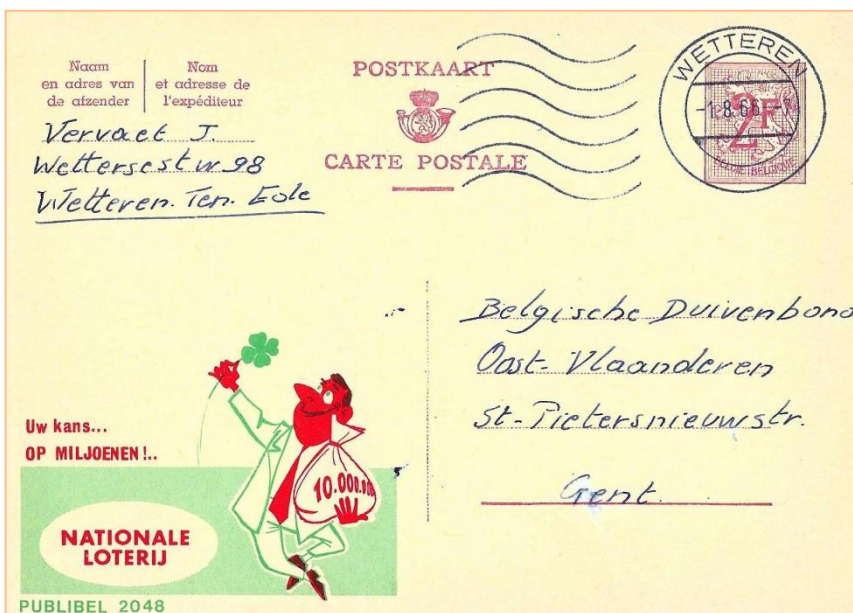 Naam
en adres van
de afzender
Nom
et adresse de
l'expéditeur
POSTKAART
CARTE POSTALE
WETTEREN
-1.8.66
2F
BELGIE BELGIQUE
Vervaet J.
Wettersestw 98
Wetteren. Ten. Eole
Belgische Duivenbond
Oost-Vlaanderen
St-Pietersnieuwstr.
Gent.
Uw kans...
OP MILJOENEN!..
10.000.000
NATIONALE
LOTERIJ
PUBLIBEL 2048